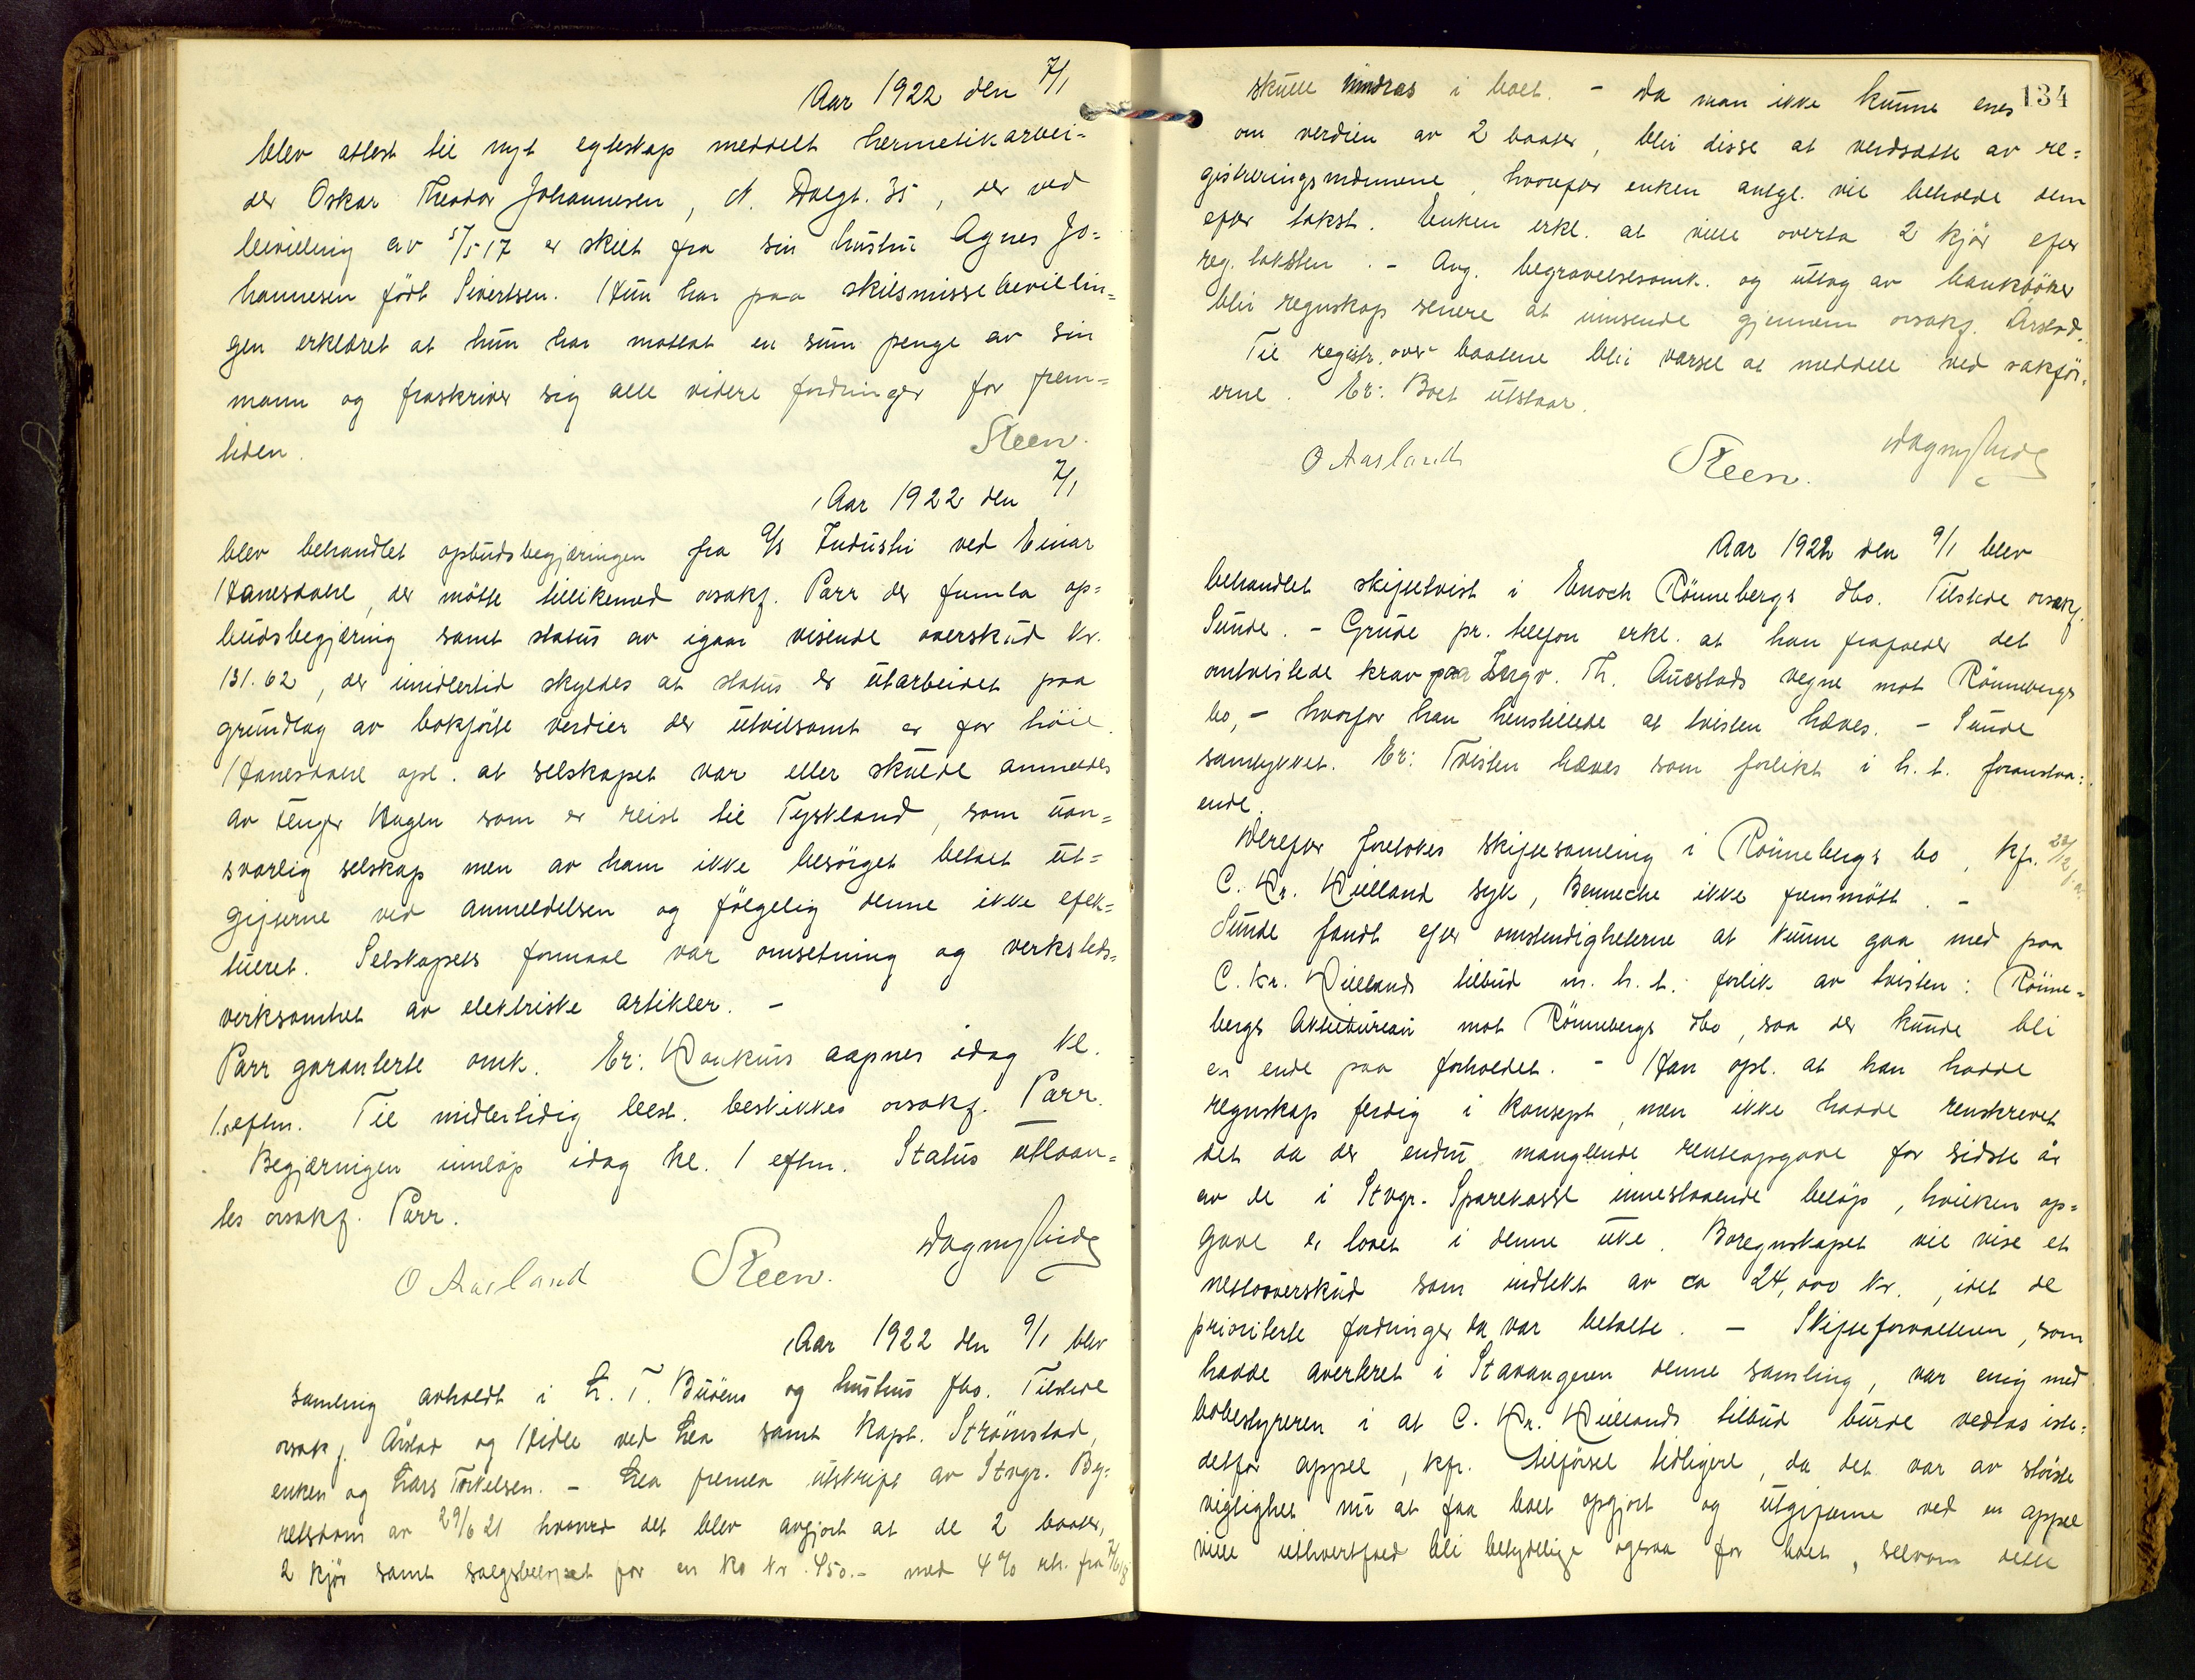 Aar 1922 den 7/1
blev attest til nyt egteskap meddelt hermetikarbei=
der Oskar Theodor Johannesen, N. Dalgt. 35, der ved
bevilling av 5/5 17 er skilt fra sin hustru Agnes Jo=
hannesen født Sivertsen. Hun har paa skilsmissebevillin=
gen erklæret at hun har mottat en sum penge av sin
mann og fraskriver sig alle videre fordringer for frem=
tiden.
Steen.
Aar 1922 den 7/1
blev behandlet opbudsbegjæringen fra A/S Industri ved Einar
Hanesdahl, der møtte tillikemed osakf. Parr der fremla op=
budsbegjæring samt status av igaar visende overskud kr.
131.62, der imidlertid skyldes at status er utarbeidet paa
grundlag av bokførte verdier der utvilsomt er for høie.
Hanesdahl opl. at selskapet var eller skulde anmeldes
av Hagen som er reist til Tyskland, som uan=
svarlig selskap men av ham ikke besørget betalt ut=
gifterne ved anmeldelsen og følgelig denne ikke efek=
tueret. Selskapets formaal var omsetning og verksteds=
virksomhet av elektriske artikler. -
Parr garanterte omk. Er: Konkurs aapnes idag kl.
1 eftm. Til midlertidig best. beskikkes osakf. Parr.
Begjæringen innløp idag kl. 1 eftm. Status utlaan=
tes osakf. Parr.
O Aasland Steen. Dagny
Aar 1922 den 9/1 blev
samling avholdt i L. T. Buøens og hustrus fbo. Tilstede
osakf. Årstad og Hidle ved Lea samt kapt. Strømstad,
enken og Lars Torkelsen. - Lea fremla utskrift av Stvgr. By=
retsdom av 29/6 21 hvorved det blev avgjort at de 2 baater,
2 kjør samt salgsbeløpet for en ko kr. 450.- med 4% rtr. fra
134
skulle inndras i boet. - Da man ikke kunne enes
om verdien av 2 baater, blir disse at verdsætte av re=
gistreringsmænnene, hvorefter enken antgl. vil beholde dem
efter takst. Enken erkl. at ville overta 2 kjør efter
reg. taksten. - Ang. begravelsesomk. og uttag av bankbøker
blir regnskap senere at innsende gjennem osakf. Årstad.
Til registr. over baatene blir varsel at meddele ved sakfør=
erne. Er: Boet utstaar.
O Aasland Steen. Dagny
Aar 1922 den 9/1 blev
behandlet skiftetvist i Enoch Rönnebergs dbo. Tilstede osakf.
Sunde. - Grude pr. telefon erkl. at han frafalder det
omtvistede krav paa Th. Auestads vegne mot Rönnebergs
bo, - hvorfor han henstillede at tvisten hæves. - Sunde
samtykket. Er: Tvisten hæves som forlikt i h. t. foranstaa=
ende.
Derefter foretokes skiftesamling i Rönnebergs bo, kfr. 22/12 f.a.
C. Kr. Kielland syk, Benneche ikke fremmøtt. -
Sunde fandt efter omstendigheterne at kunne gaa med paa
C. Kr. Kiellands tilbud m. h. t. forlik av tvisten: Rönne=
bergs Aktiebureau mot Rönnebergs dbo, saa der kunde bli
en ende paa forholdet. - Han opl. at han hadde
regnskap ferdig i konsept, men ikke hadde renskrevet
det da der endnu manglende renteopgave for sidste år
av de i Stvgr. Sparekasse innestaaende beløp, hvilken op=
gave er lovet i denne uke. Boregnskapet vil vise et
nettooverskud som indtekt av ca 24,000 kr., idet de
prioriterte fordringer da var betalte. - Skifteforvalteren, som
hadde avertert i Stavangeren denne samling, var enig med
bobestyreren i at C. Kr. Kiellands tilbud burde vedtas iste=
detfor appel, kfr. tilførsel tidligere, da det var av største
vigtighet nu at faa boet opgjort og utgifterne ved en appel
ville iethvertfald bli betydelige ogsaa for boet, selvom dette